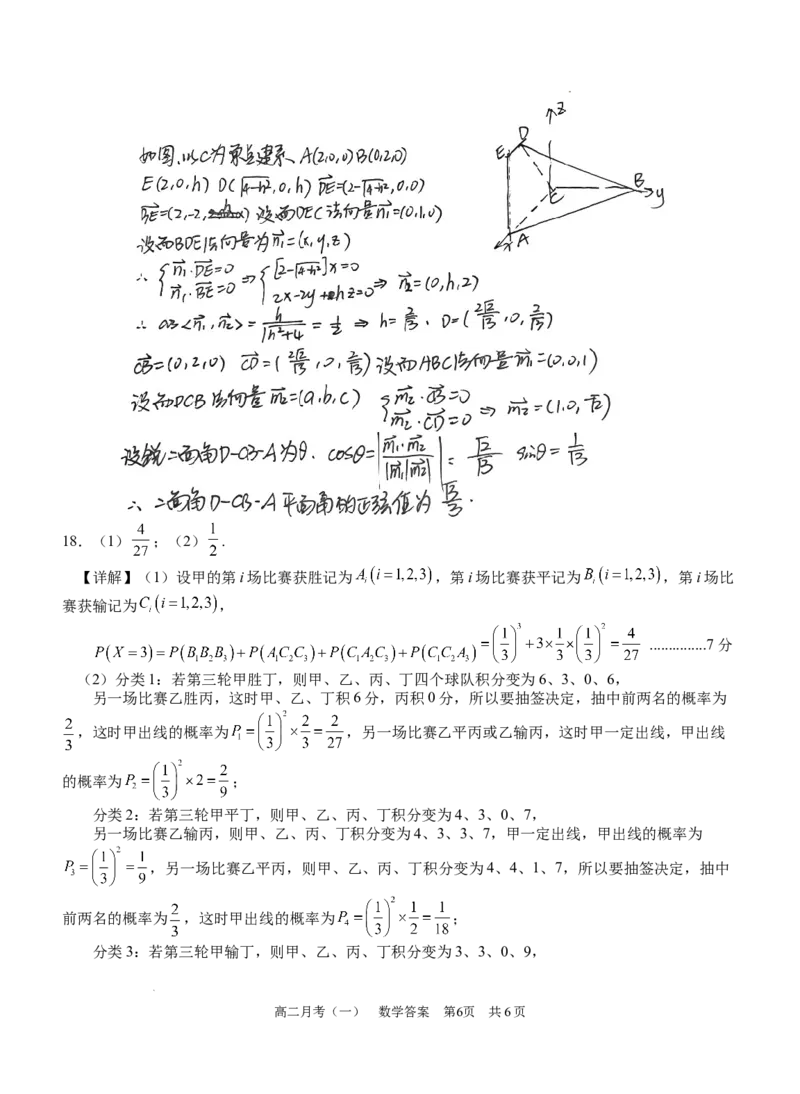 如图,以C为原点建系、A(2,0,0)B(0,2,0)
E(2,0,h) D(√4-h²,0,h) DE=(2-√4-h²,0,0)
BE=(2,-2,h) 设面DEC法向量n₁=(0,1,0)
设面BDE法向量为n₁=(x,y,z)
∴ {n₁·DE=0 n₁·BE=0 ⇒ {[2-√4-h²]x=0 2x-2y+hz=0 ⇒ n₂=(0,h,2)
∴ cos<n₁,n₂>= h/√h²+4 = 1/2 ⇒ h= 2/√3 、D=(2√2/√3,0,2/√3)
CB=(0,2,0) CD=(2√2/√3,0,2/√3) 设面ABC法向量m₁=(0,0,1)
设面DCB法向量m₂=(a,b,c) {m₂·CB=0 m₂·CD=0 ⇒ m₂=(1,0,-√2)
设锐二面角D-CB-A为θ、cosθ=|m₁·m₂/|m₁||m₂||= √2/√3 sinθ= 1/√3
∴ 二面角D-CB-A平面角的正弦值为 √3/3.
z
D
E
B
y
C
A
x
18.(1)4/27;(2)1/2.
【详解】(1)设甲的第i场比赛获胜记为Aᵢ(i=1,2,3),第i场比赛获平记为Bᵢ(i=1,2,3),第i场比
赛获输记为Cᵢ(i=1,2,3),
P(X=3)=P(B₁B₂B₃)+P(A₁C₂C₃)+P(C₁A₂C₃)+P(C₁C₂A₃)=(1/3)³+3×1/3×(1/3)²=4/27 ...............7分
(2)分类1:若第三轮甲胜丁,则甲、乙、丙、丁四个球队积分变为6、3、0、6,
另一场比赛乙胜丙,这时甲、乙、丁积6分,丙积0分,所以要抽签决定,抽中前两名的概率为
2/3,这时甲出线的概率为P₁=(1/3)²×2/3=2/27,另一场比赛乙平丙或乙输丙,这时甲一定出线,甲出线
的概率为P₂=(1/3)²×2=2/9;
分类2:若第三轮甲平丁,则甲、乙、丙、丁积分变为4、3、0、7,
另一场比赛乙输丙,则甲、乙、丙、丁积分变为4、3、3、7,甲一定出线,甲出线的概率为
P₃=(1/3)²=1/9,另一场比赛乙平丙,则甲、乙、丙、丁积分变为4、4、1、7,所以要抽签决定,抽中
前两名的概率为2/3,这时甲出线的概率为P₄=(1/3)²×1/2=1/18;
分类3:若第三轮甲输丁,则甲、乙、丙、丁积分变为3、3、0、9,
高二月考(一) 数学答案 第6页 共6页